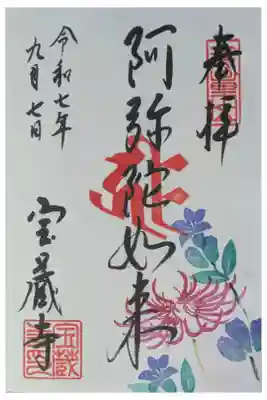 奉拝
阿弥陀如来
宝蔵寺
令和七年
九月七日